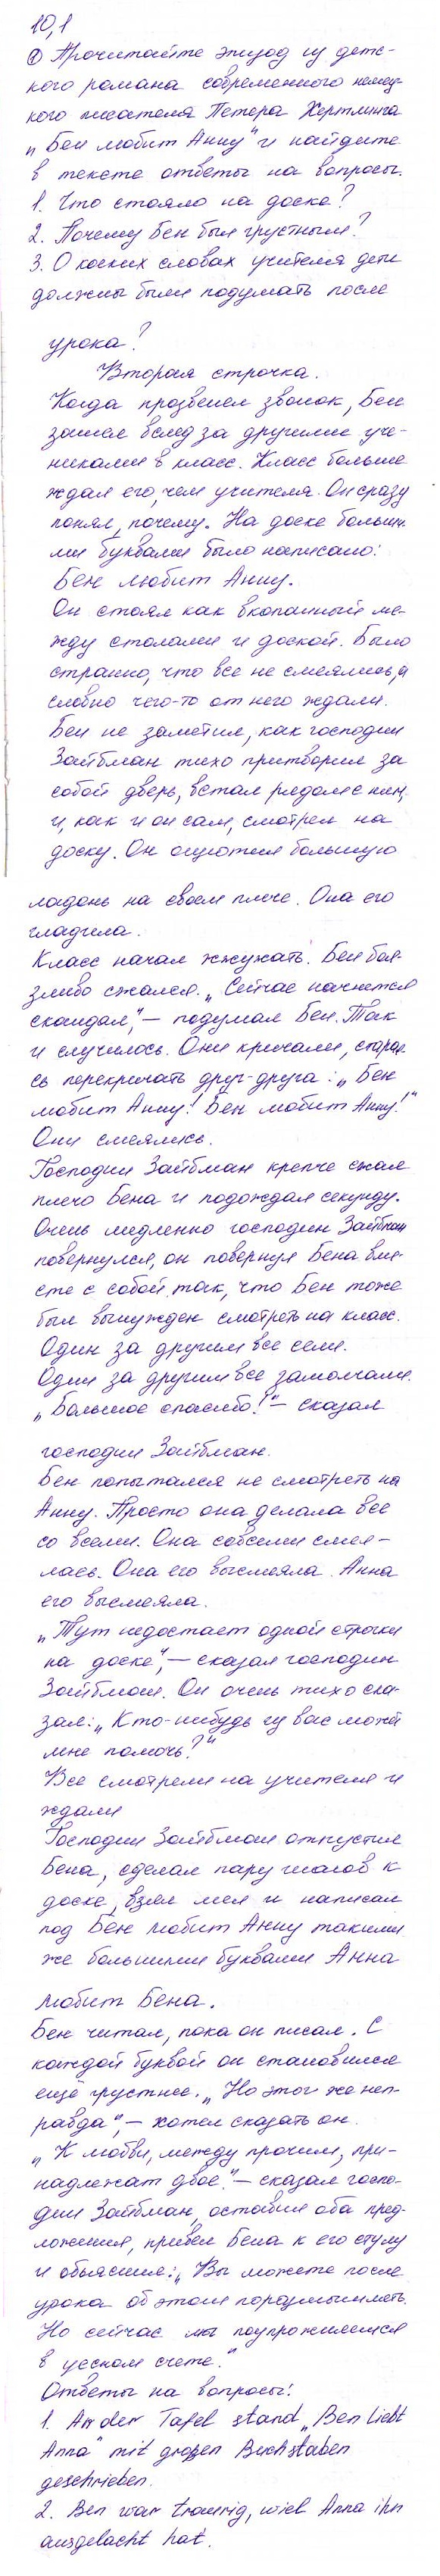 10,1
① Прочитайте эпизод из детс-
кого романа современного немец-
кого писателя Петера Хертлинга
„Бен любит Анну" и найдите
в тексте ответы на вопросы.
1. Что стояло на доске?
2. Почему Бен был грустным?
3. О каких словах учителя дети
должны были подумать после
урока?
Вторая строчка.
Когда прозвенел звонок, Бен
зашел вслед за другими уче-
никами в класс. Класс больше
ждал его, чем учителя. Он сразу
понял, почему. На доске больши-
ми буквами было написано:
Бен любит Анну.
Он стоял как вкопанный ме-
жду столами и доской. Было
странно, что все не смеялись, а
словно чего-то от него ждали.
Бен не заметил, как господин
Зайбман тихо притворил за
собой дверь, встал рядом с ним,
и, как и он сам, смотрел на
доску. Он ощутил большую
ладонь на своем плече. Она его
гладила.
Класс начал жжужать. Бен боя-
зливо сжался. „Сейчас начнется
скандал", – подумал Бен. Так
и случилось. Они кричали, старая
сь перекричать друг-друга: „Бен
любит Анну! Бен любит Анну!"
Они смеялись.
Господин Зайбман крепче сжал
плечо Бена и подождал секунду.
Очень медленно господин Зайбман
повернулся, он повернул Бена вме-
сте с собой так, что Бен тоже
был вынужден смотреть на класс.
Один за другим все сели.
Один за другим все замолчали.
„Большое спасибо!" – сказал
господин Зайбман.
Бен попытался не смотреть на
Анну. Просто она делала все
со всеми. Она совсеми смея-
лась. Она его высмеяла. Анна
его высмеяла.
„Тут недостает одной строчки
на доске", – сказал господин
Зайбман. Он очень тихо ска-
зал: „Кто-нибудь из вас может
мне помочь?"
Все смотрели на учителя и
ждали
Господин Зайбман отпустил
Бена, сделал пару шагов к
доске, взял мел и написал
под Бен любит Анну такими
же большими буквами Анна
любит Бена.
Бен читал, пока он писал. С
каждой буквой он становился
ещё грустнее. „Но это же неп-
равда", – хотел сказать он.
„К любви, между прочим, при-
надлежат двое." – сказал госпо-
дин Зайбман, оставил оба пред-
ложения, привел Бена к его стулу
и объяснил: „Вы можете после
урока об этом поразмышлять.
Но сейчас мы поупражняемся
в устном счете."
Ответы на вопросы:
1. An der Tafel stand „Ben liebt
Anna" mit großen Buchstaben
geschrieben.
2. Ben war traurig, wiel Anna ihn
ausgelacht hat.